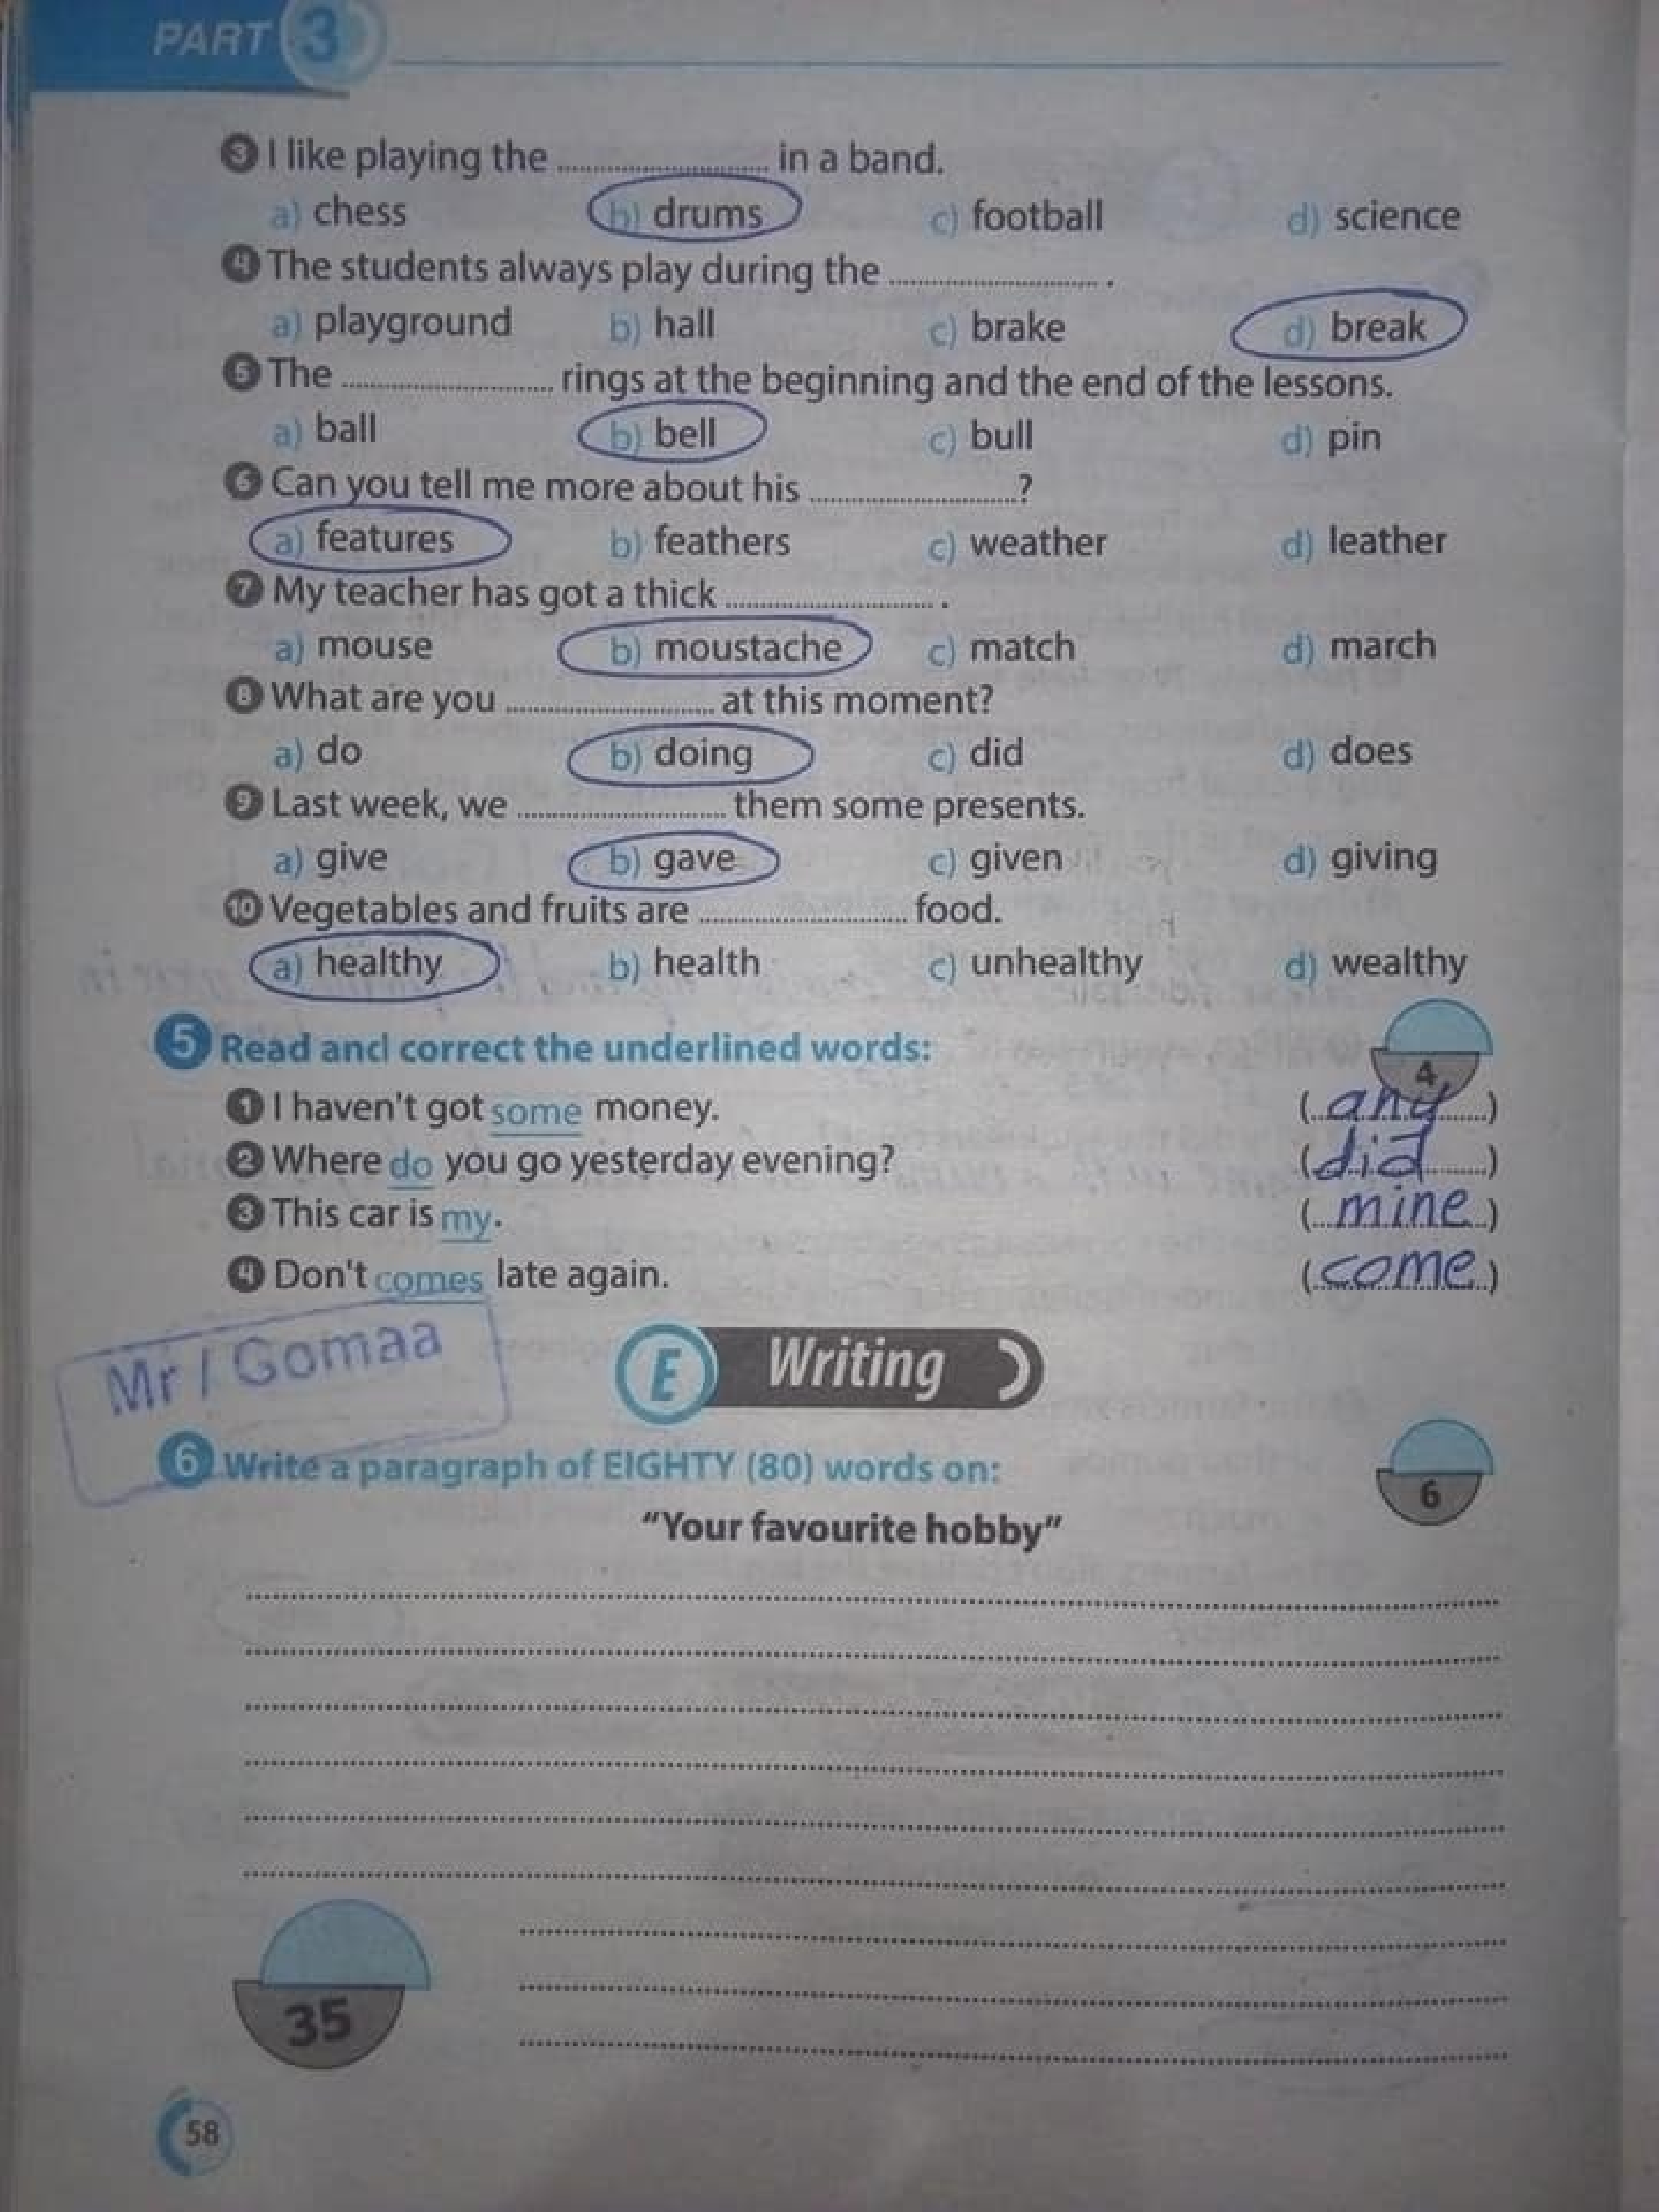 PART 3
3 I like playing the ........................ in a band.
a) chess b) drums c) football d) science
4 The students always play during the ........................ .
a) playground b) hall c) brake d) break
5 The ........................ rings at the beginning and the end of the lessons.
a) ball b) bell c) bull d) pin
6 Can you tell me more about his ........................?
a) features b) feathers c) weather d) leather
7 My teacher has got a thick ........................ .
a) mouse b) moustache c) match d) march
8 What are you ........................ at this moment?
a) do b) doing c) did d) does
9 Last week, we ........................ them some presents.
a) give b) gave c) given d) giving
10 Vegetables and fruits are ........................ food.
a) healthy b) health c) unhealthy d) wealthy
5 Read and correct the underlined words:
4
1 I haven't got some money. (..any......)
2 Where do you go yesterday evening? (did......)
3 This car is my. (..mine..)
4 Don't comes late again. (.come..)
Mr / Gomaa
E Writing
6 Write a paragraph of EIGHTY (80) words on:
6
"Your favourite hobby"
35
58